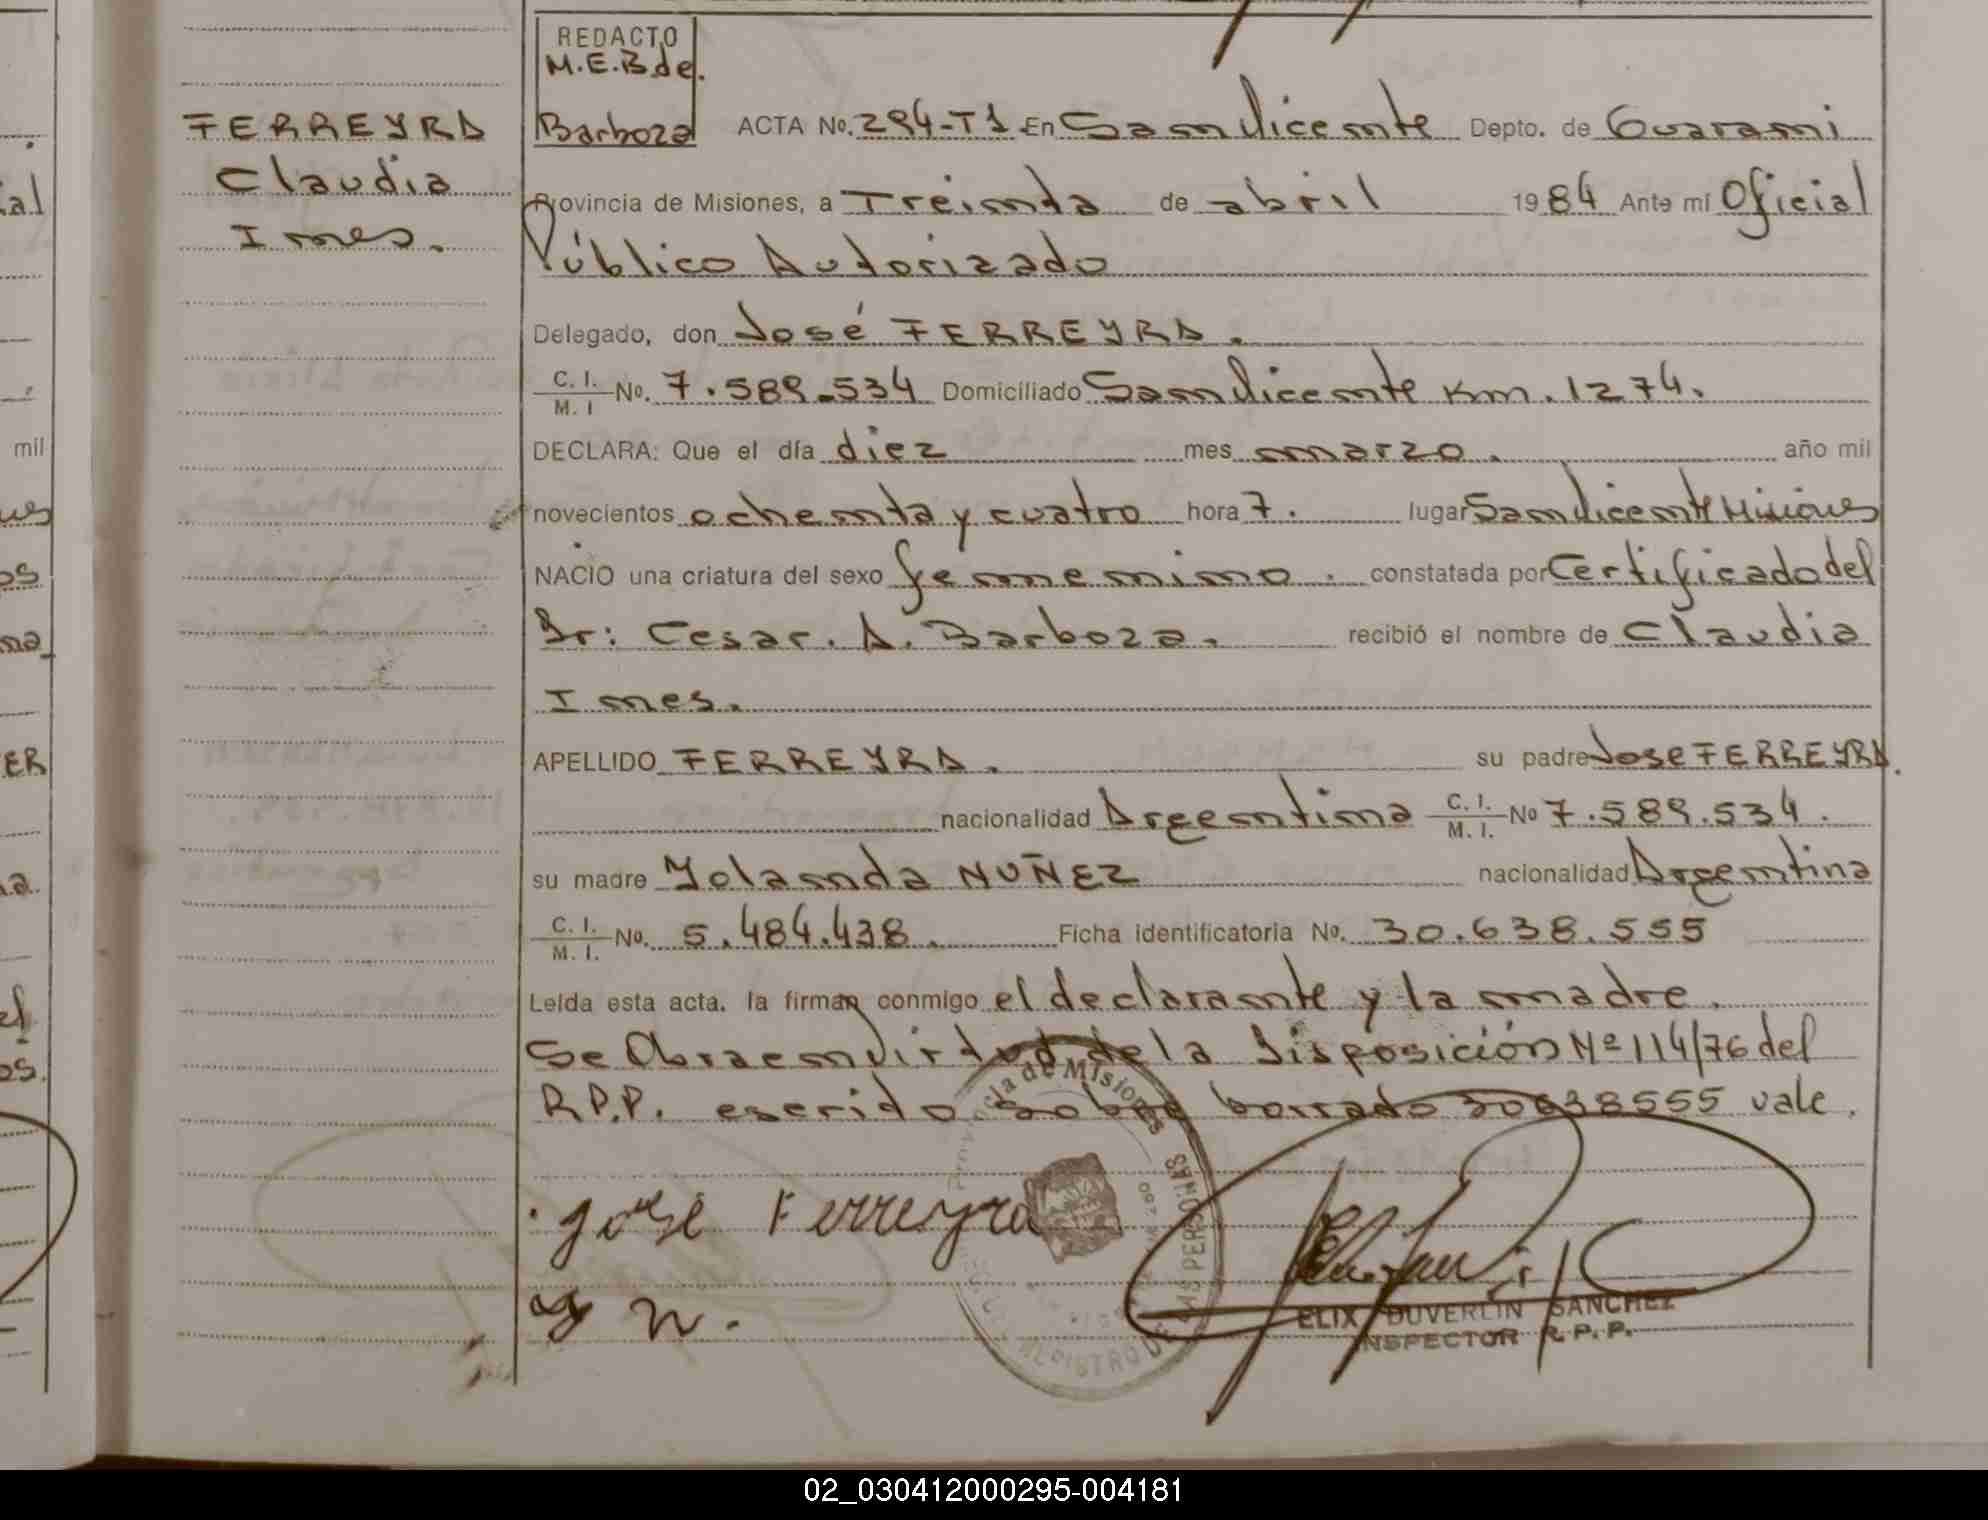 REDACTO
M.E.B de.
Barboza
FERREYRA
Claudia
Ines.
ACTA No. 294-T1 En San Vicente Depto. de Guarani
Provincia de Misiones, a Treinta de abril 1984 Ante mí Oficial
Público Autorizado
Delegado, don José FERREYRA.
C. I. M. I No. 7.589.534 Domiciliado San Vicente Km. 1274.
DECLARA: Que el día diez mes marzo. año mil
novecientos ochenta y cuatro hora 7. lugar San Vicente Misiones
NACIO una criatura del sexo femenino. constatada por Certificado del
Dr: Cesar. A. Barboza. recibió el nombre de Claudia
Ines.
APELLIDO FERREYRA. su padre Jose FERREYRA.
nacionalidad Argentina C. I. M. I. No 7.589.534.
su madre Yolanda NUÑEZ nacionalidad Argentina
C. I. M. I. No. 5.484.438. Ficha identificatoria No. 30.638.555
Leída esta acta, la firman conmigo el declarante y la madre.
Se Obra en virtud de la Disposición Nº 114/76 del
R.P.P. escrito sobre borrado 30638555 vale.
Provincia de Misiones
REGISTRO DE LAS PERSONAS
José Ferreyra
Y N.
ELIX DUVERLIN SANCHEZ
INSPECTOR R.P.P.
mil
02_030412000295-004181